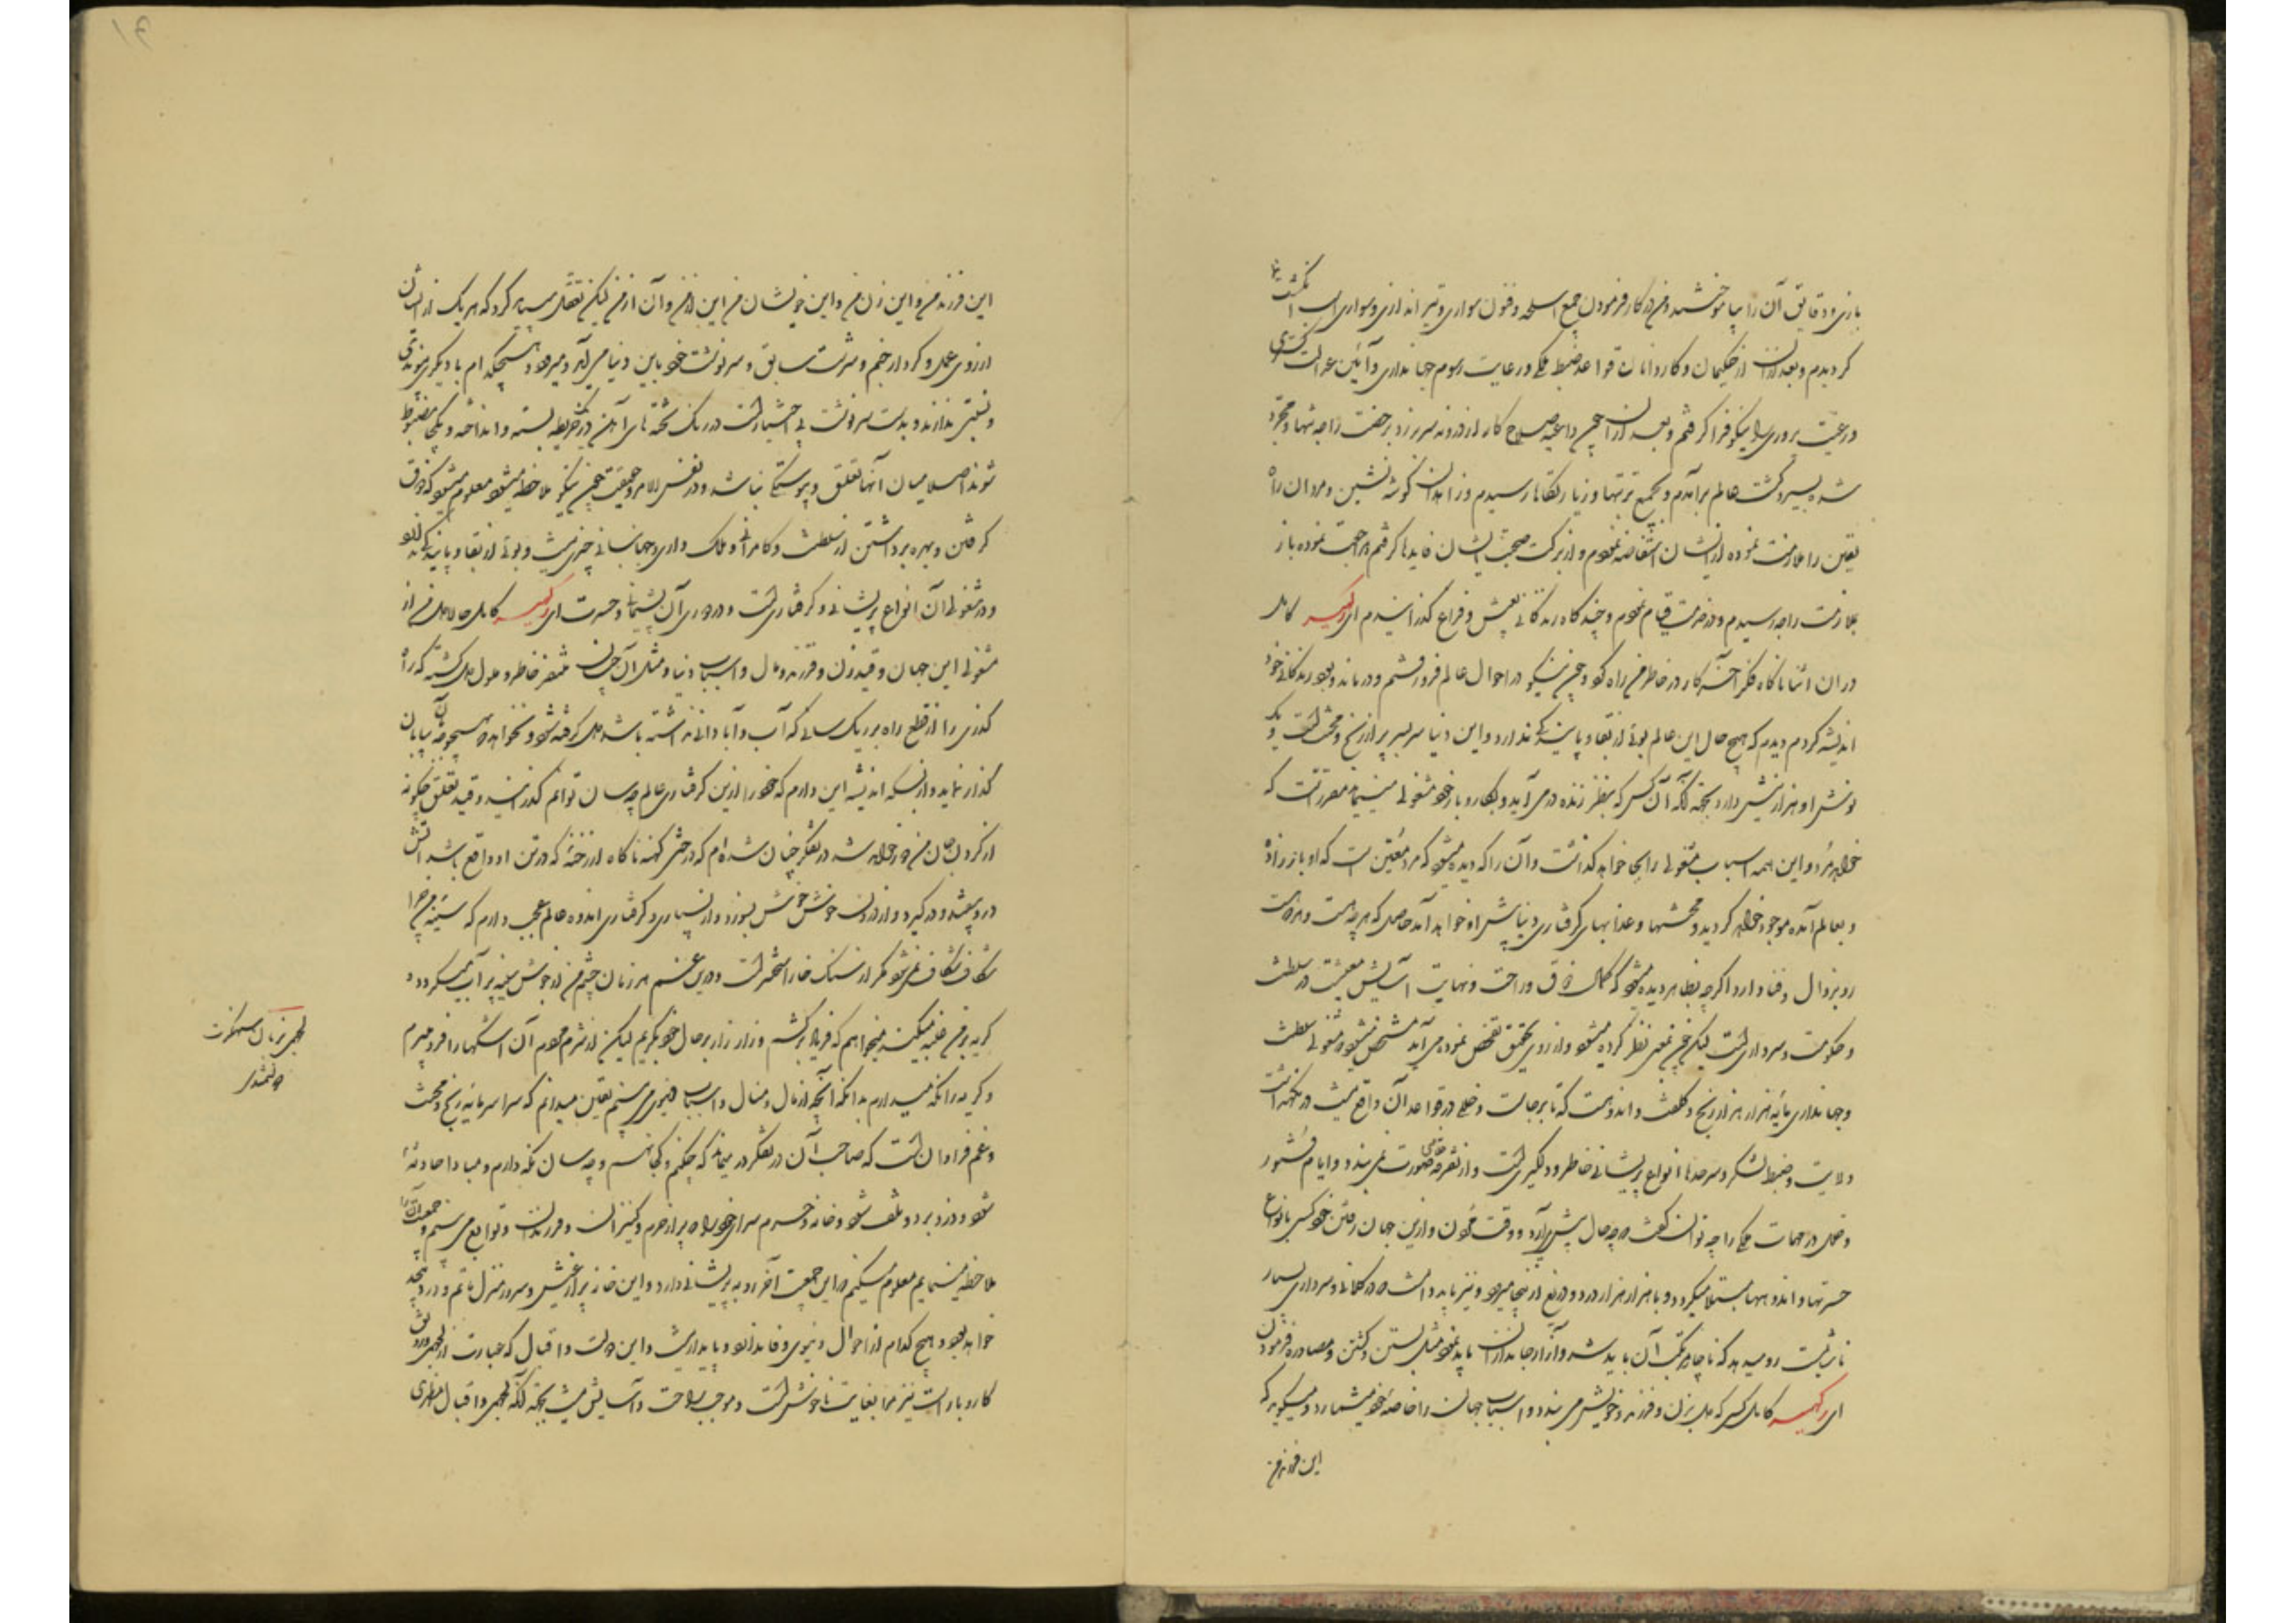 بازی و دقایق آن را بیاموختم و من در کار فرمودن جمیع اسلحه و فنون سواری و تیر اندازی و سواری اسپ انگشت نما
کردیدم و بعد ازان از حکیمان و کاردانان قواعد ضبط ملکی و رعایت رسوم جهانداری و آئین عدالت گستری
و رعیت پروری را نیکو فرا گرفتم و بعد ازان چون داعیه صلاح کار از درونم سر بر زد برخصت راجه تنها و مجرد
شده بسیر و گشت عالم برآمدم و بجمیع تربتها و زیارتگاها رسیدم و زاهدان گوشه نشین و مردان راه
یقین را ملازمت نموده از ایشان استفاضه نمودم و از برکت صحبت ایشان فایدها گرفتم مراجعت نموده باز
بملازمت راجه رسیدم و در خدمت قیام نمودم و چند گاه زندگانی بعیش و فراغ گذرانیدم ای رکهیسر کامل
در ان اثنا ناگاه فکر آخر کار در خاطر من راه کرد و چون نیکو در احوال عالم فرو رفتم و در ماند و بود زندگانی خود
اندیشه کردم دیدم که هیچ حال این عالم بوئی از بقا و پایندگی ندارد و این دنیا سربسر پر از رنج و محنت است و یک
نوش او هزار نیش دارد بجهة آنکه آن کس که بنظر زنده در می آید و بکار و بار خود مشغولی مینماید مقررست که
خواهد مرد و این همه اسباب مشغولی را بجا خواهد گذاشت و آن را که دیده میشود که مرد معین است که او باز زاده
و بعالم آمده موجود خواهد گردید و محنتها و عذابهای گرفتاری دنیا پیش راه خواهد آمد حاصل که هر چه هست و هر که هست
رو بزوال و فنا دارد و اگرچه بظاهر دیده میشود که کمال ذوق و راحت و نهایت آسایش معیشت در سلطنت
و حکومت و سرداری است لیکن چون بمعنی نظر کرده میشود و از روی تحقیق تفحص نموده می آید مشخص میشود مشغولی سلطنت
و جهانداری مایه هزار هزار رنج و کلفت و اندوهست که تا برجاست و خللی در قواعد آن واقع نیست در نگهداشت
ولایت و ضبط لشکر و سرحدها انواع پریشانی خاطر و دلگیری است و از تفرقه خلاصی صورت نمی بندد و ایام فتور
و خلل در مهمات ملکی را چه توان گفت که چه حال پیش می آرد و وقت مردن و ازین جهان رفتن خود کسی بانواع
حسرتها و اندوهها مبتلا میگردد و با هزار هزار درد و دریغ ازینجا میرود و نیز باید دانست که در کلانی و سرداری بسیار
ناشایست رو میدهد که ناچار مرتکب آن باید شد و آزار جانداران باید نمود مثل بستن و کشتن و مصادره فرمودن
ای رکهیسر کامل کسی که دل بزن و فرزند و خویش می بندد و اسباب جهان را خاصه خود میشمارد و میگوید که
این فرزند من
این فرزند من و این زن من و این خویشان من این از من و آن از من لیکن تعقل سپاهی کرد که هر یک از ایشان
از روی عمل و کردار جنم و سرشت سابق و سرنوشت خود باین دنیا می آید و میرود و هیچکدام با دیگری پیوندی
و نسبتی ندارند و بدست سرنوشت بی اختیار است در رنگ تخته های آهن در یک خریطه بسته و انداخته و یکجا مضبوط
شوند اصلا میان آنها تعلق و پیوستگی نباشد و در نفس الامر و حقیقت چون نیکو ملاحظه میشود معلوم میشود که ذوق
گرفتن و بهره برداشتن از سلطنت و کامرانی و ملک داری و جهانبانی چیزی نیست و بوئی از بقا و پایندگی ندارد
و در مشغولی آن انواع پریشانی و گرفتاری است و در دوری آن پشیمانی و حسرت ای رکهیسر کامل حالا دل من از
مشغولی این جهان و قید زن و فرزند و مال و اسباب دنیا و مثل آن چنان متنفر خاطر و ملول دل گشته که راه
گذری را از قطع راه بر ریگستانی که آب و آبادانی نداشته باشد دل گرفته شود و نخواهد که هیچوقت بآن بیابان
گذار نماید و از بسکه اندیشه این دارم که خود را ازین گرفتاری عالم چه سان توانم گذرانید و قید تعلق چگونه
از گردن جان من دور خواهد شد در تفکر چنان شده ام که درختی کهنه ناگاه از رخنه که در تن او واقع باشد آتش
درو بیفتد و در گیرد و از درون خویش خویش بسوزد و از بسیاری گرفتاری اندوه عالم عجب دارم که سینه من چرا
شکاف شکاف نمی شود مگر از سنگ خارا سخت تر است و درین غم هر زمان چشم من از جوش سینه پر آب میگردد و
گریه بر من غلبه میکند میخواهم که فریاد بر کشم و زار زار بر حال خود بگریم لیکن از شرم مردم آن اشکها را فرو میبرم
و گریه را نگه میدارم بدانکه آنچه از مال و منال و اسباب دنیوی می بینم یقین میدانم که سراسر مایه رنج و محنت
و غم فراوان است که صاحب آن در تفکر در میماند که چکنم و کجا نهم و چه سان نگه دارم و مبادا حادثه
شود و دزد برد و تلف شود و خانه و حرم سرای خود را که پر از حرم و کنیزان و فرزندان و توابع می بینم و جمعیت آنها
ملاحظه مینمایم معلوم میکنم که این جمعیت آخر رو به پریشانی دارد و این خانه پر از عیش و سرور منزل ماتم و درد
خواهد بود و هیچ کدام از احوال دنیوی وفا ندارد و پایدار نیست و این دولت و اقبال که عبارت از لچهمی و رونق
کار و بار است نیز مرا بغایت ناخوش است و موجب راحت و آسایش نیست بجهة آنکه لچهمی و اقبال ظاهری
لچهمی بزبان سهنسکرت
دولتمندی